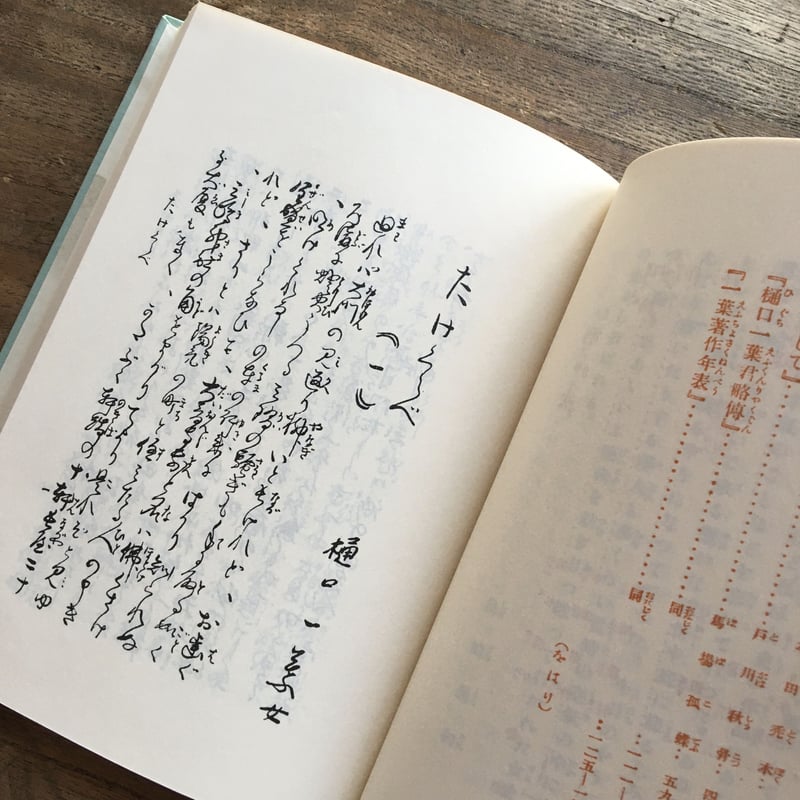 田禿木
戸川秋骨 四
して』………馬場孤蝶 五九
『樋口一葉君略傳』………同
『一葉著作年表』………同
(をはり)
たけくらべ
(一)
樋口一葉女
廻れば大門の見返り柳いと長けれど、お歯ぐ
ろ溝に燈火うつる三階の騒ぎも手に取る如く
、明けくれなしの車の行来にはかり知られぬ
全盛をうらなひて、大音寺前と名は佛くさけ
れど、さりとは陽気の町と住みたる人の申き
、三嶋神社の角をまがりてより是れぞと見ゆ
る大厦もなく、かたぶく軒端の十軒長屋二十
たけくらべ